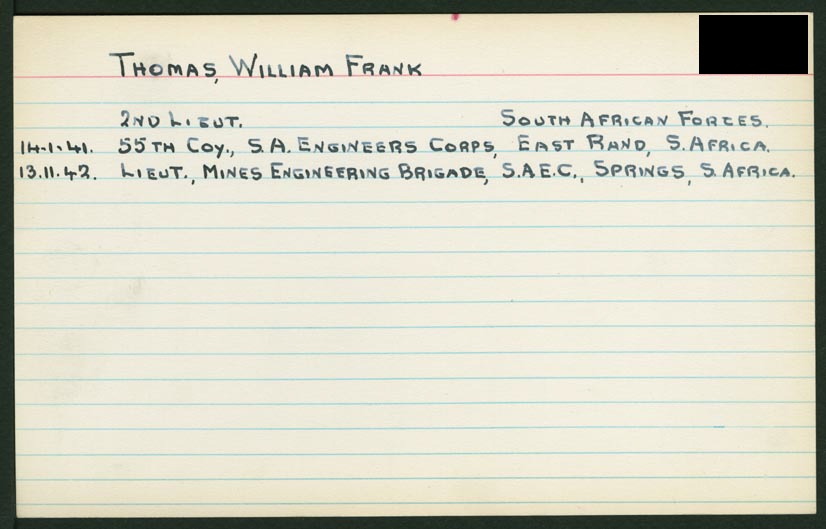 THOMAS, WILLIAM FRANK
2ND LIEUT. SOUTH AFRICAN FORCES.
14.1.41. 55TH COY., S.A. ENGINEERS CORPS, EAST RAND, S.AFRICA.
13.11.42. LIEUT., MINES ENGINEERING BRIGADE, S.A.E.C., SPRINGS, S.AFRICA.